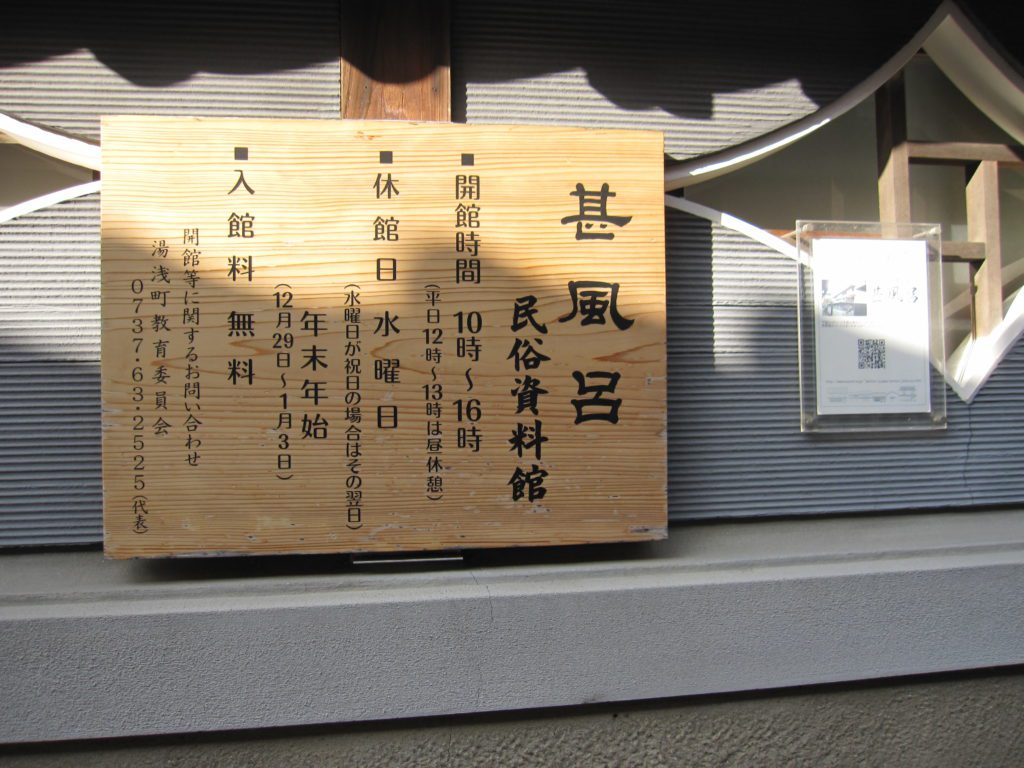 甚風呂
民俗資料館
■開館時間 10時〜16時
(平日12時〜13時は昼休憩)
■休館日 水曜日
(水曜日が祝日の場合はその翌日)
年末年始
(12月29日〜1月3日)
■入館料 無料
開館等に関するお問い合わせ
湯浅町教育委員会
0737・63・2525(代表)
甚風呂